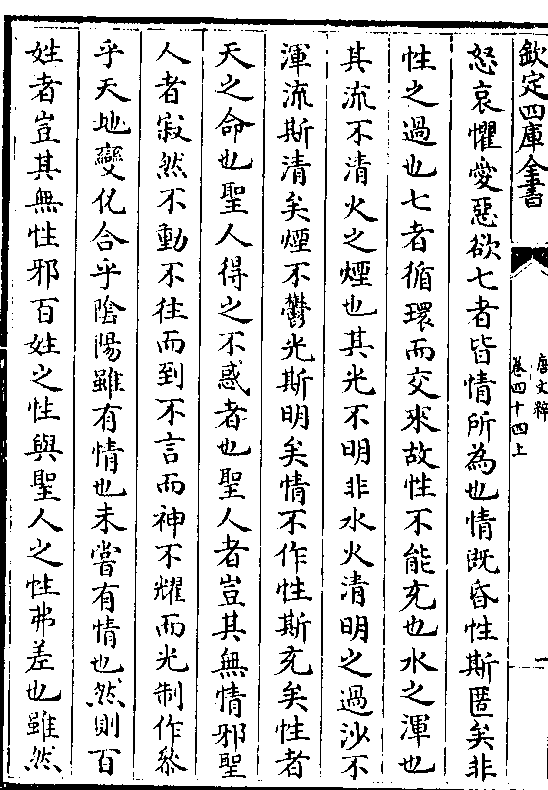 欽定四庫全書
唐文粹
卷四十四上
一
怒哀懼愛惡欲七者皆情所為也情既昏性斯匿矣非
性之過也七者循環而交來故性不能充也水之渾也
其流不清火之煙也其光不明非水火清明之過沙不
渾流斯清矣煙不鬱光斯明矣情不作性斯充矣性者
天之命也聖人得之不惑者也聖人者豈其無情邪聖
人者寂然不動不往而到不言而神不耀而光制作叅
乎天地變化合乎陰陽雖有情也未嘗有情也然則百
姓者豈其無性邪百姓之性與聖人之性弗差也雖然